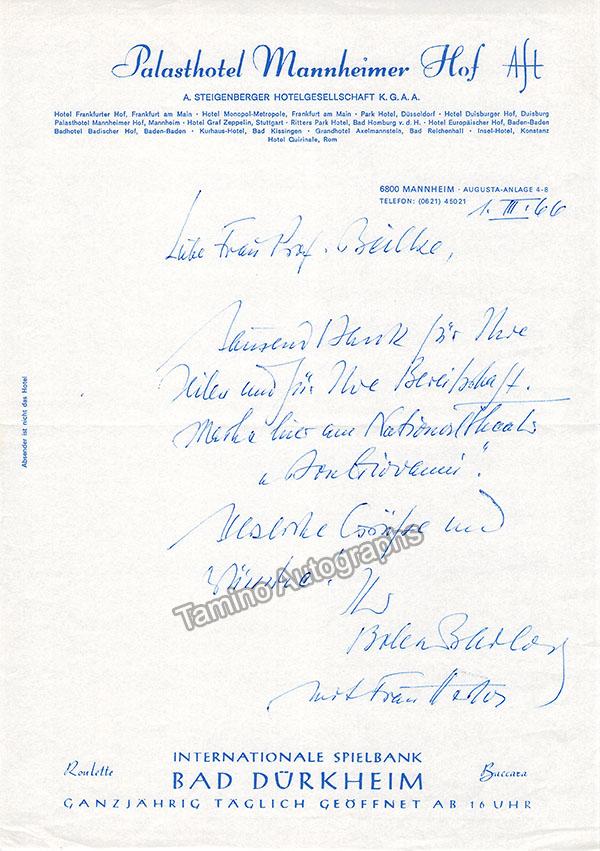 Palasthotel Mannheimer Hof AſH
A. STEIGENBERGER HOTELGESELLSCHAFT K.G.A.A.
Hotel Frankfurter Hof, Frankfurt am Main · Hotel Monopol-Metropole, Frankfurt am Main · Park Hotel, Düsseldorf · Hotel Duisburger Hof, Duisburg
Palasthotel Mannheimer Hof, Mannheim · Hotel Graf Zeppelin, Stuttgart · Ritters Park Hotel, Bad Homburg v. d. H. · Hotel Europäischer Hof, Baden-Baden
Badhotel Badischer Hof, Baden-Baden · Kurhaus-Hotel, Bad Kissingen · Grandhotel Axelmannstein, Bad Reichenhall · Insel-Hotel, Konstanz
Hotel Quirinale, Rom
6800 MANNHEIM · AUGUSTA-ANLAGE 4-8
TELEFON: (0621) 45021
1. III. 66
Liebe Frau Prof. Beilke,
Tausend Dank für Ihre
Zeilen und für Ihre Bereitschaft.
Mache hier am Nationaltheater
"Don Giovanni".
Herzliche Grüße und
Wünsche!
Ihr
mit Frau
Absender ist nicht das Hotel
Tamino Autographs
INTERNATIONALE SPIELBANK
Roulette BAD DÜRKHEIM Baccara
GANZJÄHRIG TÄGLICH GEÖFFNET AB 16 UHR